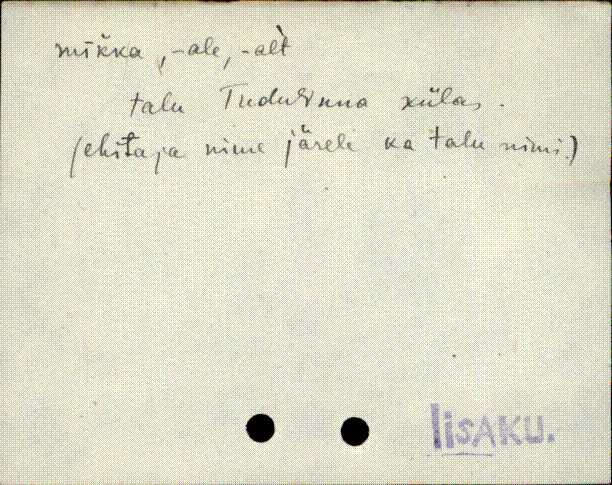 mikka, -ale, -alt
talu Tudulinna külas.
(ehitaja nime järele ka talu nimi.)
IisAKU.